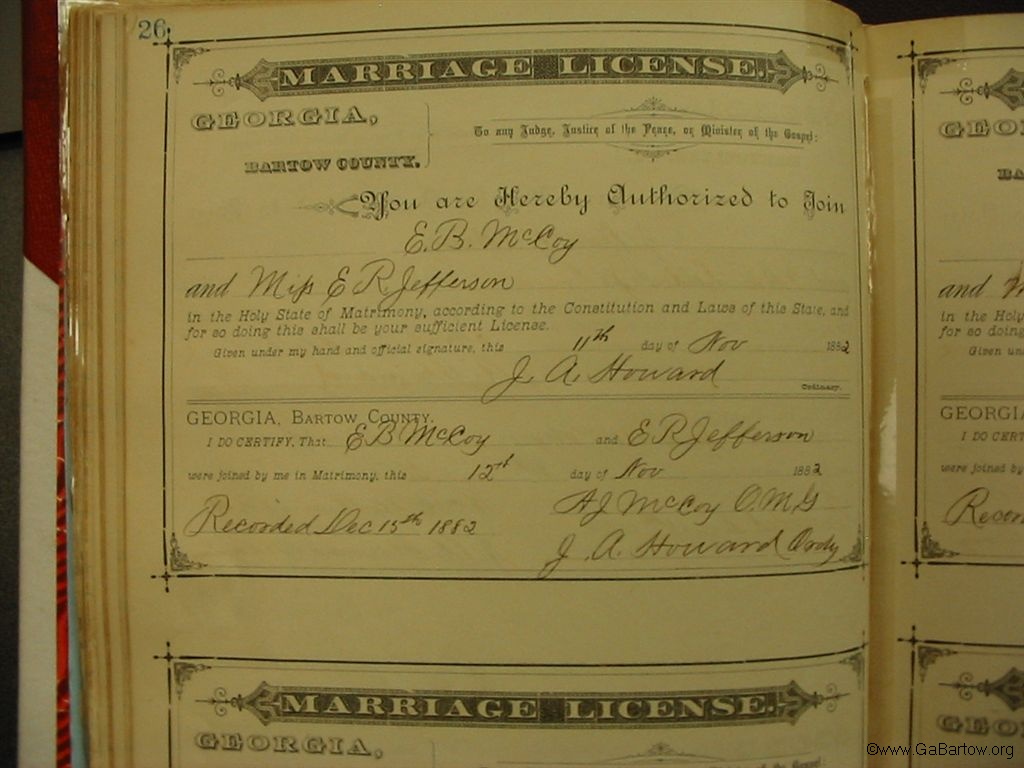 26
MARRIAGE LICENSE.
GEORGIA,
BARTOW COUNTY.
To any Judge, Justice of the Peace, or Minister of the Gospel:
You are Hereby Authorized to Join
E. B. McCoy
and Miss E R Jefferson
in the Holy State of Matrimony, according to the Constitution and Laws of this State, and
for so doing this shall be your sufficient License.
Given under my hand and official signature, this 11th day of Nov 1882
J. A. Howard
Ordinary.
GEORGIA, BARTOW COUNTY.
I DO CERTIFY, That E B McCoy and E R Jefferson
were joined by me in Matrimony, this 12th day of Nov 1882
A J McCoy O.M.G
Recorded Dec 15th 1882
J. A. Howard Ordy
MARRIAGE LICENSE.
GEORGIA,
GEO
BA
and
in the Holy
for so doing
Given un
GEORGIA
I DO CERT
were joined by
Recor
GEO
©www.GaBartow.org